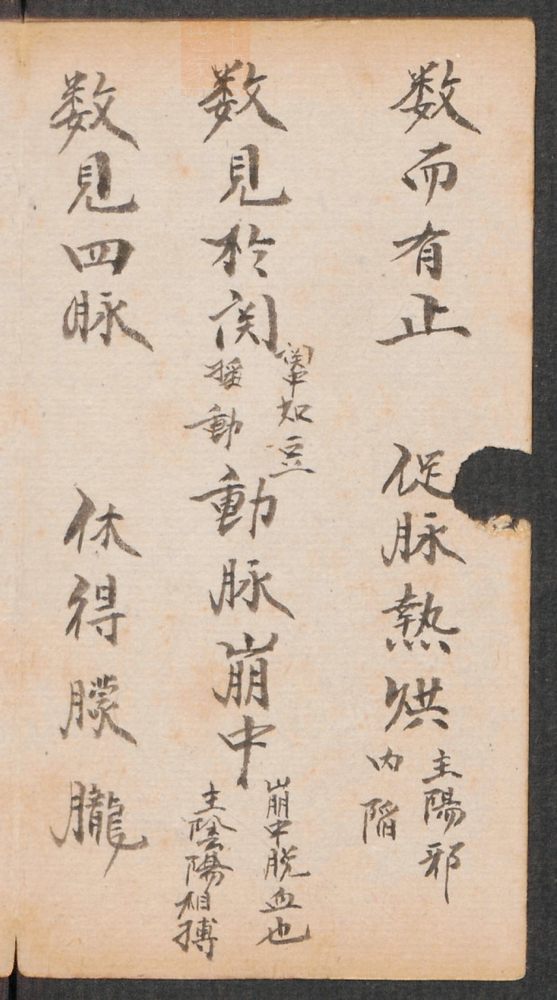 数而有止 促脉熱烘 主陽邪
内陷
数見於関 関中如豆
摇動 動脉崩中 崩中脱血也
主陰陽相搏
数見四脉 休得朦朧